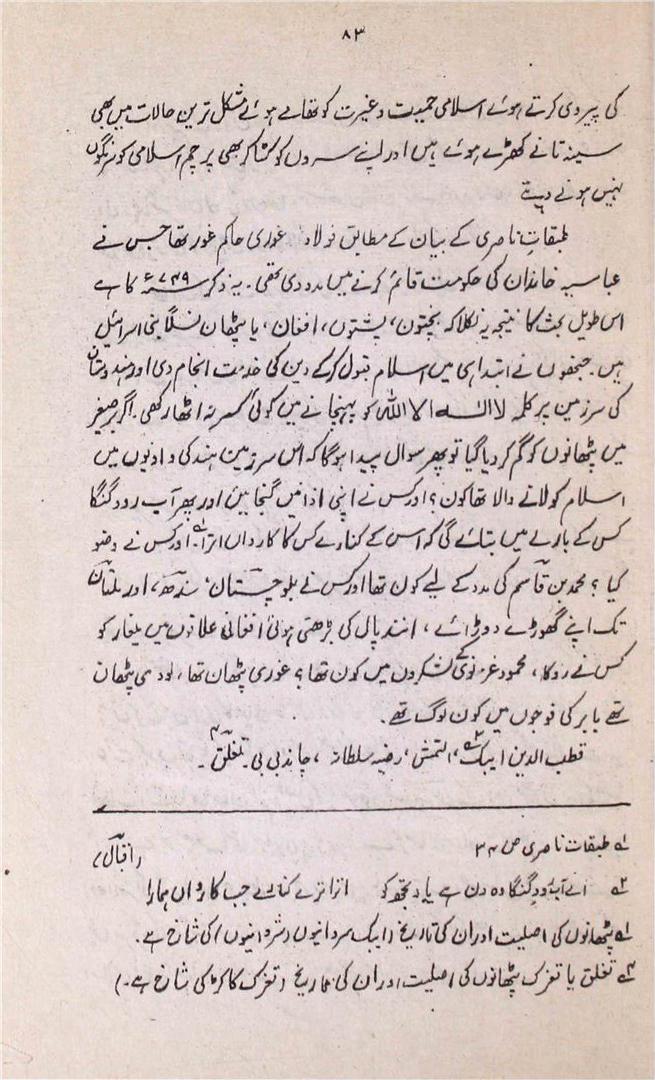 ۸۳
کی پیروی کرتے ہوئے اسلامی حمیت و غیرت کو تھامے ہوئے مشکل ترین حالات میں بھی
سینہ تانے کھڑے ہوئے ہیں اور اپنے سروں کو کٹا کر بھی پرچم اسلامی کو سرنگوں
نہیں ہونے دیتے
طبقاتِ ناصری کے بیان کے مطابق فولاد غوری حاکم غور تھا جس نے
عباسیہ خاندان کی حکومت قائم کرنے میں مدد دی تھی۔ یہ ذکر ۷۴۹ء کا ہے
اس طویل بحث کا نتیجہ یہ نکلا کہ پختون، پشتون، افغان، یا پٹھان نسلاً بنی اسرائیل
ہیں۔ جنھوں نے ابتدا ہی میں اسلام قبول کرکے دین کی خدمت انجام دی اور ہندوستان
کی سرزمین پر کلمہ لا الٰہ الا اللہ کو پہنچانے میں کوئی کسر نہ اٹھا رکھی۔ اگر برصغیر
میں پٹھانوں کو گم کر دیا گیا تو پھر سوال پیدا ہوگا کہ اس سرزمین ہند کی وادیوں میں
اسلام کو لانے والا تھا کون؟ اور کس نے اپنی اذانیں گنجائیں اور پھر آب رود گنگا
کس کے بارے میں بتائے گی کہ اس کے کنارے کس کا کارواں اترا۲۔ اور کس نے وضو
کیا؟ محمد بن قاسم کی مدد کے لیے کون تھا اور کس نے بلوچستان، سندھ، اور ملتان
تک اپنے گھوڑے دوڑائے، انند پال کی بڑھتی ہوئی افغانی علاقوں میں یلغار کو
کس نے روکا، محمود غزنوی کے لشکروں میں کون تھا؟ غوری پٹھان تھا، لودھی پٹھان
تھے بابر کی فوجوں میں کون لوگ تھے۔
قطب الدین ایبک۳، التمش، رضیہ سلطانہ، چاند بی بی۔ تغلق۴۔
۱ طبقات ناصری ص ۳۴
۲ اے آبِ رودِ گنگا وہ دن ہے یاد تجھ کو اترا ترے کنارے جب کارواں ہمارا (اقبال)
۱ پٹھانوں کی اصلیت اور ان کی تاریخ (ایبک سردانیوں کی شاخ ہے۔
۴ تغلق یا تغرک پٹھانوں کی اصلیت اور ان کی تاریخ (تغرک کاکڑ کی شاخ ہے۔)